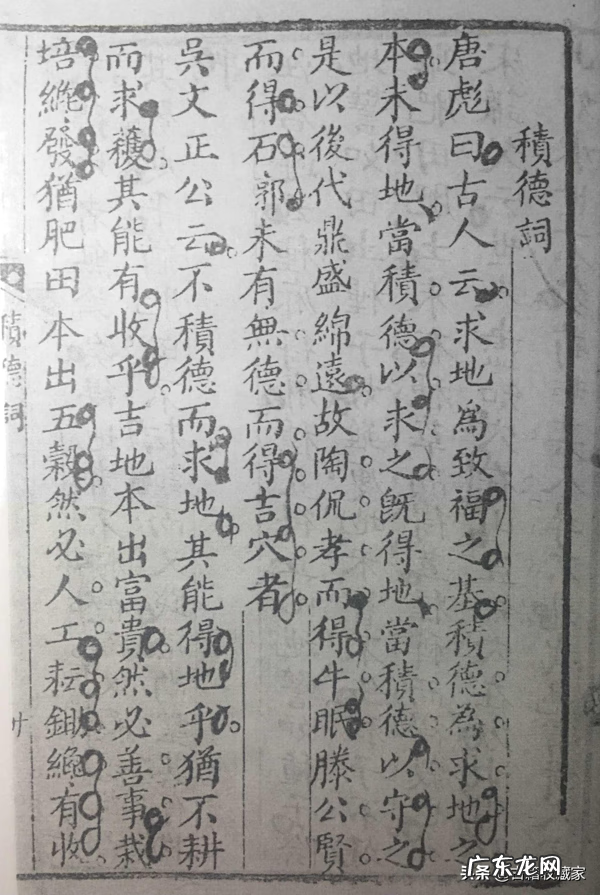 積德詞
唐彪曰古人云求地為致福之基積德為求地之
本未得地當積德以求之既得地當積德以守之
是以後代鼎盛綿遠故陶侃孝而得牛眠滕公賢
而得石郭未有無德而得吉穴者
吳文正公云不積德而求地其能得地乎猶不耕
而求穫其能有收乎吉地本出富貴然必善事栽
培纔發猶肥田本出五穀然必人工耘鋤纔有收
積德詞
廾
头条@古籍收藏家
广东龙网